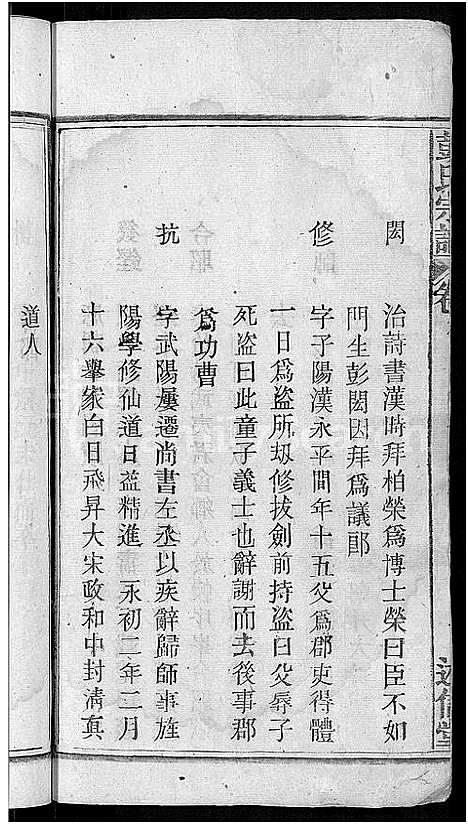 彭氏宗譜 卷
述信堂
閎 治詩書漢時拜柏榮爲博士榮曰臣不如
門生彭閎因拜爲議郎
修 字子陽漢永平間年十五父爲郡吏得體
一日爲盜所刼修拔劍前持盜曰父辱子
死盜曰此童子義士也辭謝而去後事郡
爲功曹
抗 字武陽屢遷尚書左丞以疾辭歸師事旌
陽學修仙道日益精進 永初二年二月
十六舉家白日飛昇大宋政和中封清真
道人